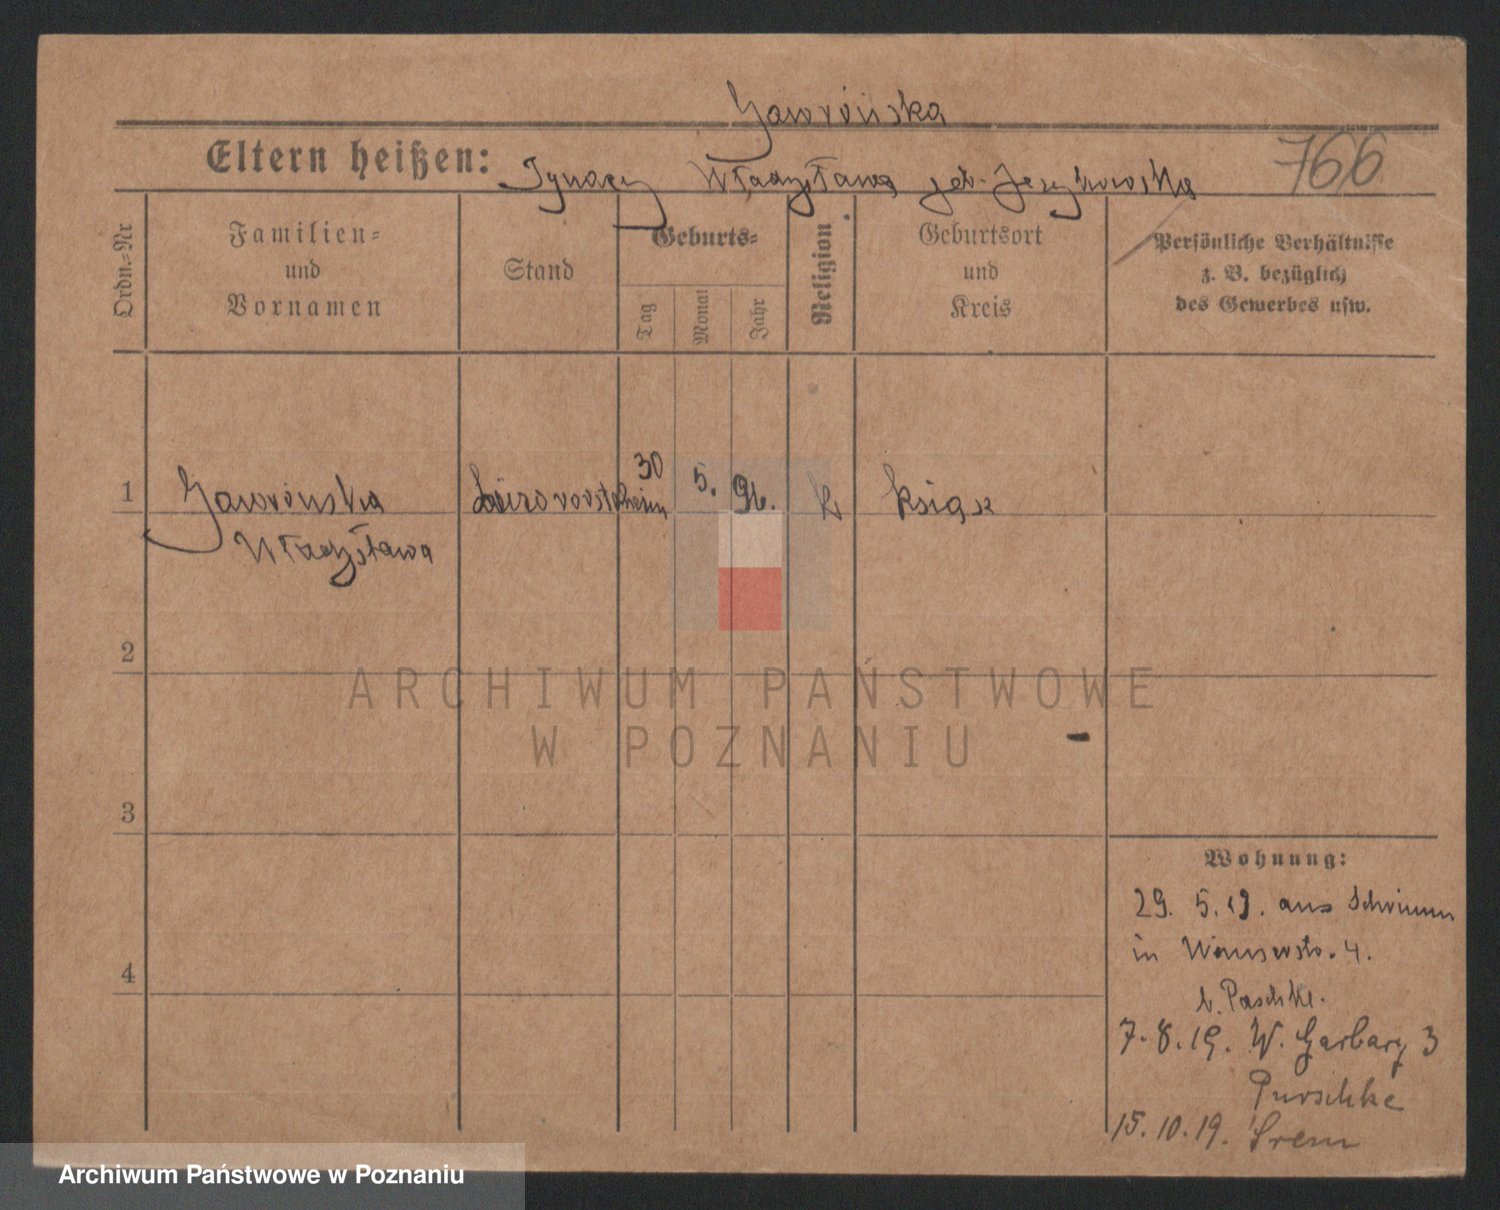 Jaworóńska
Eltern heißen: Ignacy Władysława geb. Jezykowska 766
Ordn.=Nr
Familien=
und
Vornamen
Stand
Geburts=
Tag
Monat
Jahr
Religion
Geburtsort
und
Kreis
Persönliche Verhältnisse
z. B. bezüglich
des Gewerbes usw.
1 Jaworóńska 30 5. 96. k Książ
Władysława
2
3
4
Wohnung:
29. 5. 19. aus Schrimm
in 4.
b. Paschke.
7. 8. 19. W. Garbary 3
Purschke
15. 10. 19. Śrem
ARCHIWUM PAŃSTWOWE
W POZNANIU
Archiwum Państwowe w Poznaniu